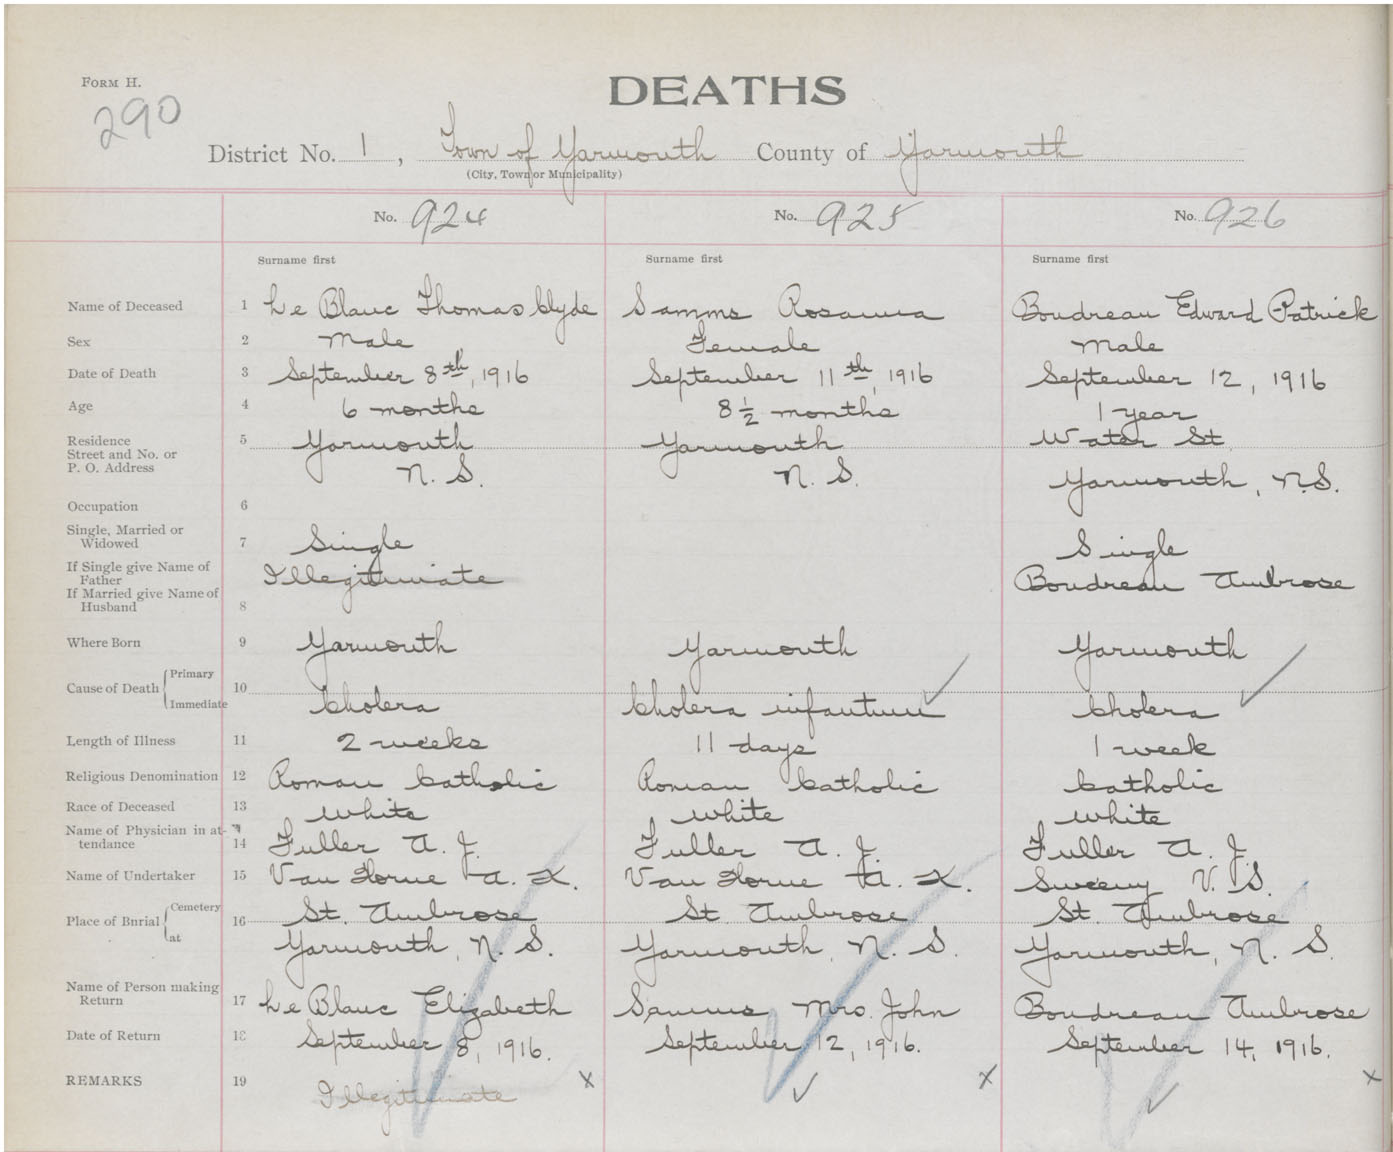 FORM H.
290
DEATHS
District No. 1, Town of Yarmouth County of Yarmouth
(City, Town or Municipality)
No. 924 No. 925 No. 926
Surname first Surname first Surname first
Name of Deceased 1 Le Blanc Thomas Clyde Samms Rosanna Boudreau Edward Patrick
Sex 2 Male Female Male
Date of Death 3 September 8th, 1916 September 11th, 1916 September 12, 1916
Age 4 6 months 8 1/2 months 1 year
Residence 5 Yarmouth Yarmouth Water St
Street and No. or
P. O. Address N. S. N. S. Yarmouth, N.S.
Occupation 6
Single, Married or
Widowed 7 Single Single
If Single give Name of
Father Illegitimate Boudreau Ambrose
If Married give Name of
Husband 8
Where Born 9 Yarmouth Yarmouth Yarmouth
Cause of Death Primary 10
Immediate Cholera Cholera infantum Cholera
Length of Illness 11 2 weeks 11 days 1 week
Religious Denomination 12 Roman Catholic Roman Catholic Catholic
Race of Deceased 13 White White White
Name of Physician in at-
tendance 14 Fuller A. J. Fuller A. J. Fuller A. J.
Name of Undertaker 15 Van Horne A. K. Van Horne A. K. Sweeny V. S.
Place of Burial Cemetery 16 St. Ambrose St Ambrose St. Ambrose
at Yarmouth, N. S. Yarmouth, N. S. Yarmouth, N. S.
Name of Person making
Return 17 Le Blanc Elizabeth Samms Mrs. John Boudreau Ambrose
Date of Return 18 September 8, 1916. September 12, 1916. September 14, 1916.
REMARKS 19 Illegitimate x x x